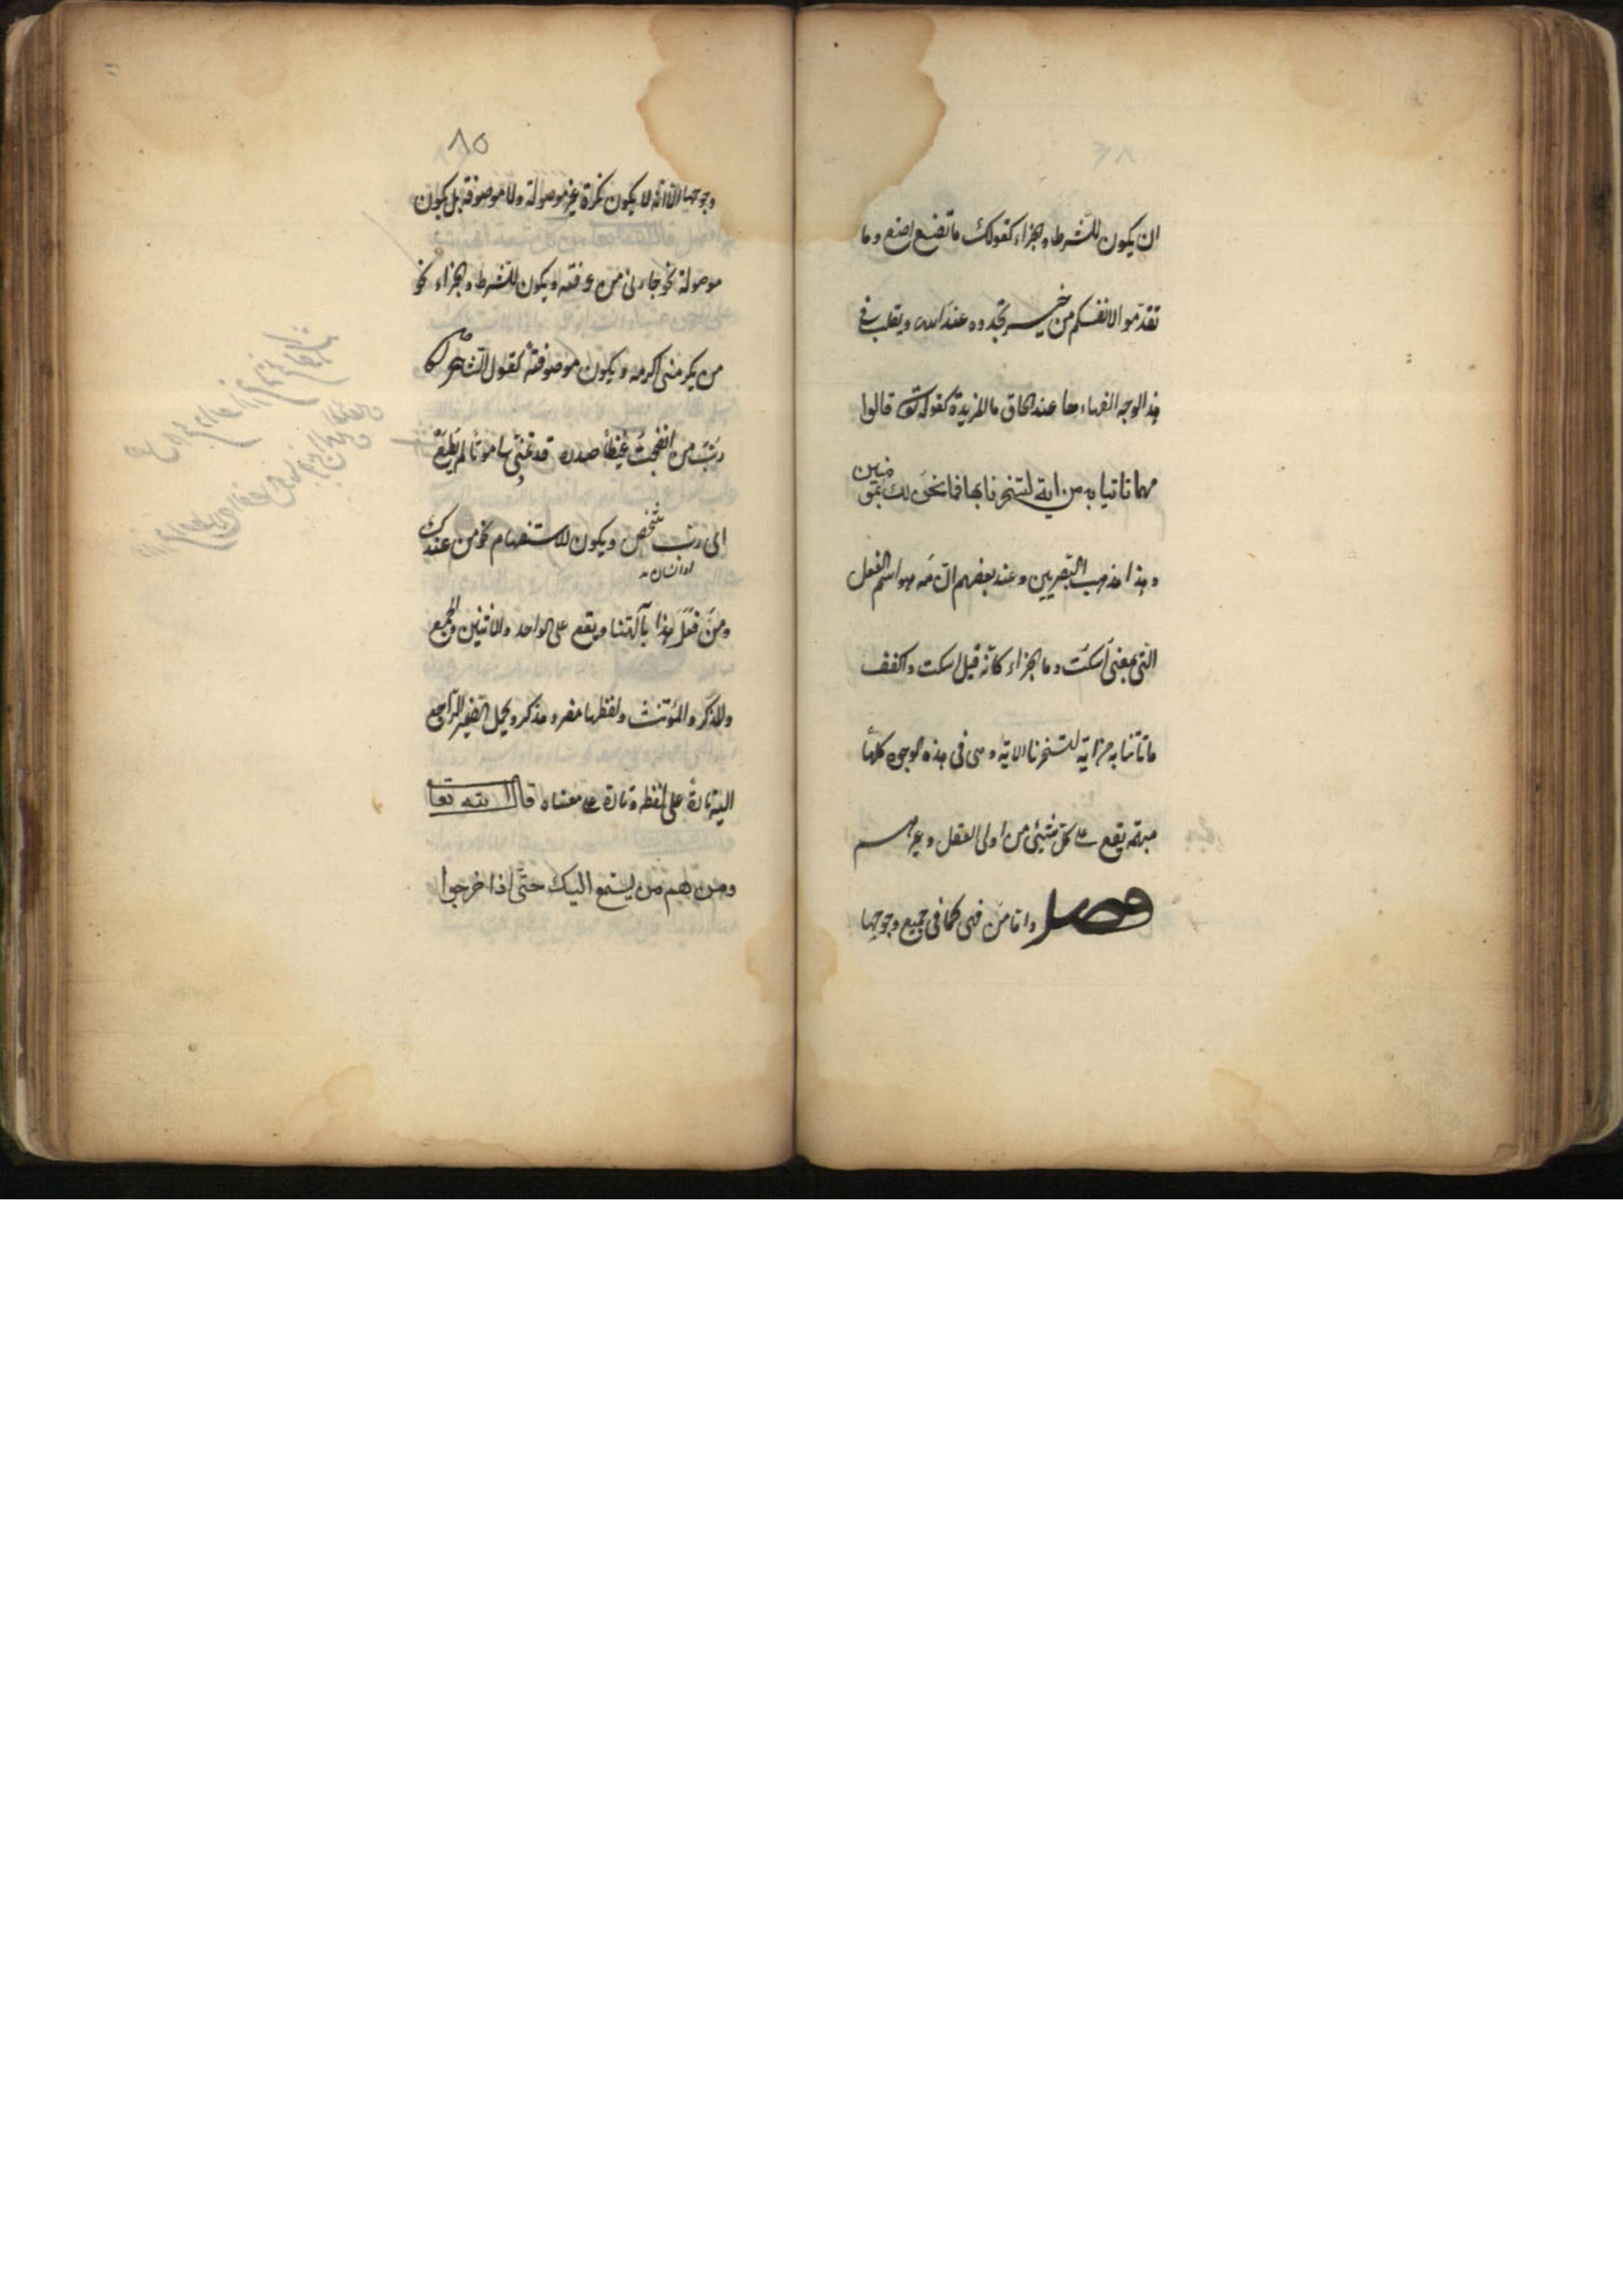 ان يكون للشرط والجزاء كقولك ما تصنع اصنع وما
تقدّموا لانفسكم من خير تجدوه عند الله ويقلب في
هذا الوجه الفها هاء عند الحاق ما المزيدة كقوله تعالى قالوا
مهما تاتنا به من اية لتسحرنا بها فما نحن لك بمؤمنين
وهذا مذهب البصريين وعند بعضهم انّ مه هو اسم الفعل
التي بمعنى اسكت وما الجزاء كانّه قيل اسكت واكفف
ما تأتنا به من اية لتسحرنا الاية وهي في هذه الوجوه كلّها
مبهمة يقع على كلّ شيئ من اولى العقل وغيرهم
فصل وامّا من فهي كما في جميع وجوهها
٨٥
وجوهها الّا انّه لا يكون نكرة غير موصولة ولا موصوفة بل يكون
موصولة نحو جاءني من عرفته ويكون للشرط والجزاء نحو
من يكرمني اكرمه ويكون موصوفة كقول الشاعر
ربّ من انضجت غيظًا صدره قد تمنّى لي موتًا لم يطع
اى ربّ شخص ويكون للاستفهام نحو من عندك
او انسان
ومن فعل هذا بآلهتنا ويقع على الواحد والاثنين والجمع
والمذكّر والمؤنّث ولفظها مفرد مذكر ويحمل الضمير الراجع
اليه تارة على لفظه وتارة على معناه قال الله تعا
ومن هم من يستمع اليك حتّى اذا خرجوا